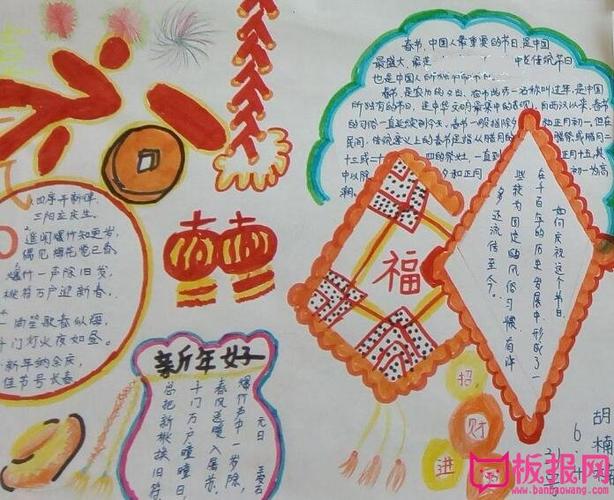 春节,中国人最重要的节日,是中国
最盛大、最
传统节日
也是中国人所
春节,是农历的岁首,春节的另一名称叫过年,是中国
所独有的节日,是中华文明最集中的表现。自西汉以来,春节
的习俗一直延续到今天。春节一般指除夕和正月初一。但在
民间,传统意义上的春节是指从腊月的腊祭或腊月
十三或二十四的祭灶,一直到正月十五,其
中以除夕和正月初一为高
潮。
如何庆祝这个节日,
在千百年的历史发展中,形成了一
些较为固定的风俗习惯,有许
多还流传至今。
福
招
财
进
四序开新律,
三阳应庆生。
遥闻爆竹知更岁,
偶见梅花觉已春。
爆竹一声除旧岁,
桃符万户迎新春。
笙歌春似海,
千门灯火夜如昼。
新年纳余庆,
佳节号长春。
新年好
元日
王安石
爆竹声中一岁除,
春风送暖入屠苏。
千门万户曈曈日,
总把新桃换旧符。
胡楠
6
板报网
www.banbaowang.com